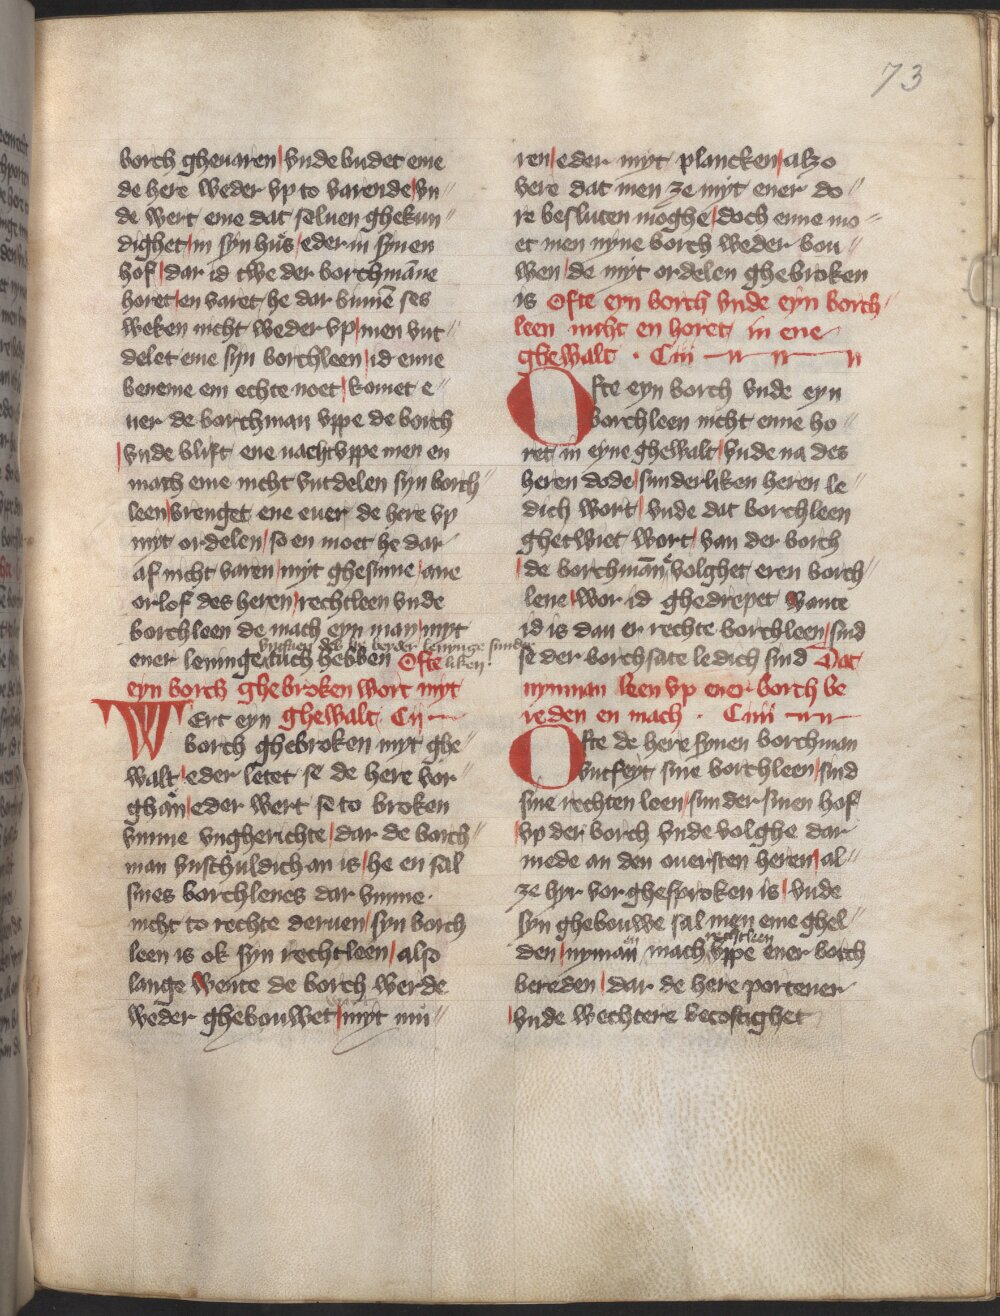 73
borch gheuaren/ vnde budet eme
de here weder vp to varende/ vn〃
de wert eme dat seluen ghekun〃
dighet/ in syn hus/ eder in synen
hof/ dar id twe der borchmāne
horet/ en varet he dar binnē ses
weken nicht weder vp/ men vnt〃
delet eme syn borchleen/ id enne
beneme em echte noet/ komet e〃
uer de borchman vppe de borch
/vnde blift ene nacht vppe men en
mach eme nicht vntdelen syn borch〃
leen/ brenget ene euer de here vp
myt ordelen/ so en moet he dar
af nicht varen/ myt ghesinne/ ane
orlof des heren/ rechtleen vnde
borchleen de mach eyn man/ myt
ener leninge tuch hebben Ofte
eyn borch ghebroken wort myt
WErt eyn ghewalt. Cij
borch ghebroken myt ghe〃
walt/ eder letet se de here vor〃
ghan/ eder wert se to broken
vmme vngherichte/ dar de borch〃
man vnschuldich an is/ he en sal
snes borchlenes dar vmme
nicht to rechte deruen/ syn borch
leen is ok syn rechtleen/ also
lange wente de borch werde
weder ghebouwet/ myt mu
ren/ eder myt plancken/ alzo
vere dat men ze myt ener do〃
re besluten moghe/ doch enne mo〃
et men nyne borch weder bou〃
wen/ de myt ordelen ghebroken
is Ofte eyn borch vnde eyn borch〃
leen nicht en horet in ene
ghewalt. Ciii
Ofte eyn borch vnde eyn
borchleen nicht enne ho〃
ret in eyne ghewalt/ vnde na des
heren dode/ sunderliken heren le〃
dich wort/ vnde dat borchleen
ghetwiet wort/ van der borch
/de borchmān volghet eren borch〃
lene/ wor id ghedrepet wante
id is dan er rechte borchleen/ sind
se der borchsate ledich sind Dat
nynman leen vp ener borch be
reden en mach. Ciiii
Ofte de here synen borchman
vntseyt sine borchleen/ sind
sine rechten leen/ sunder sinen hof
/vp der borch vnde volghe dar
mede an den ouersten heren/ al〃
ze hyr vor ghesproken is/ vnde
syn ghebouwe sal men eme ghel〃
rechtleen
den/ nyman en mach vppe ener borch
bereden/ dar de here portener
/vnde wechtere becostighet